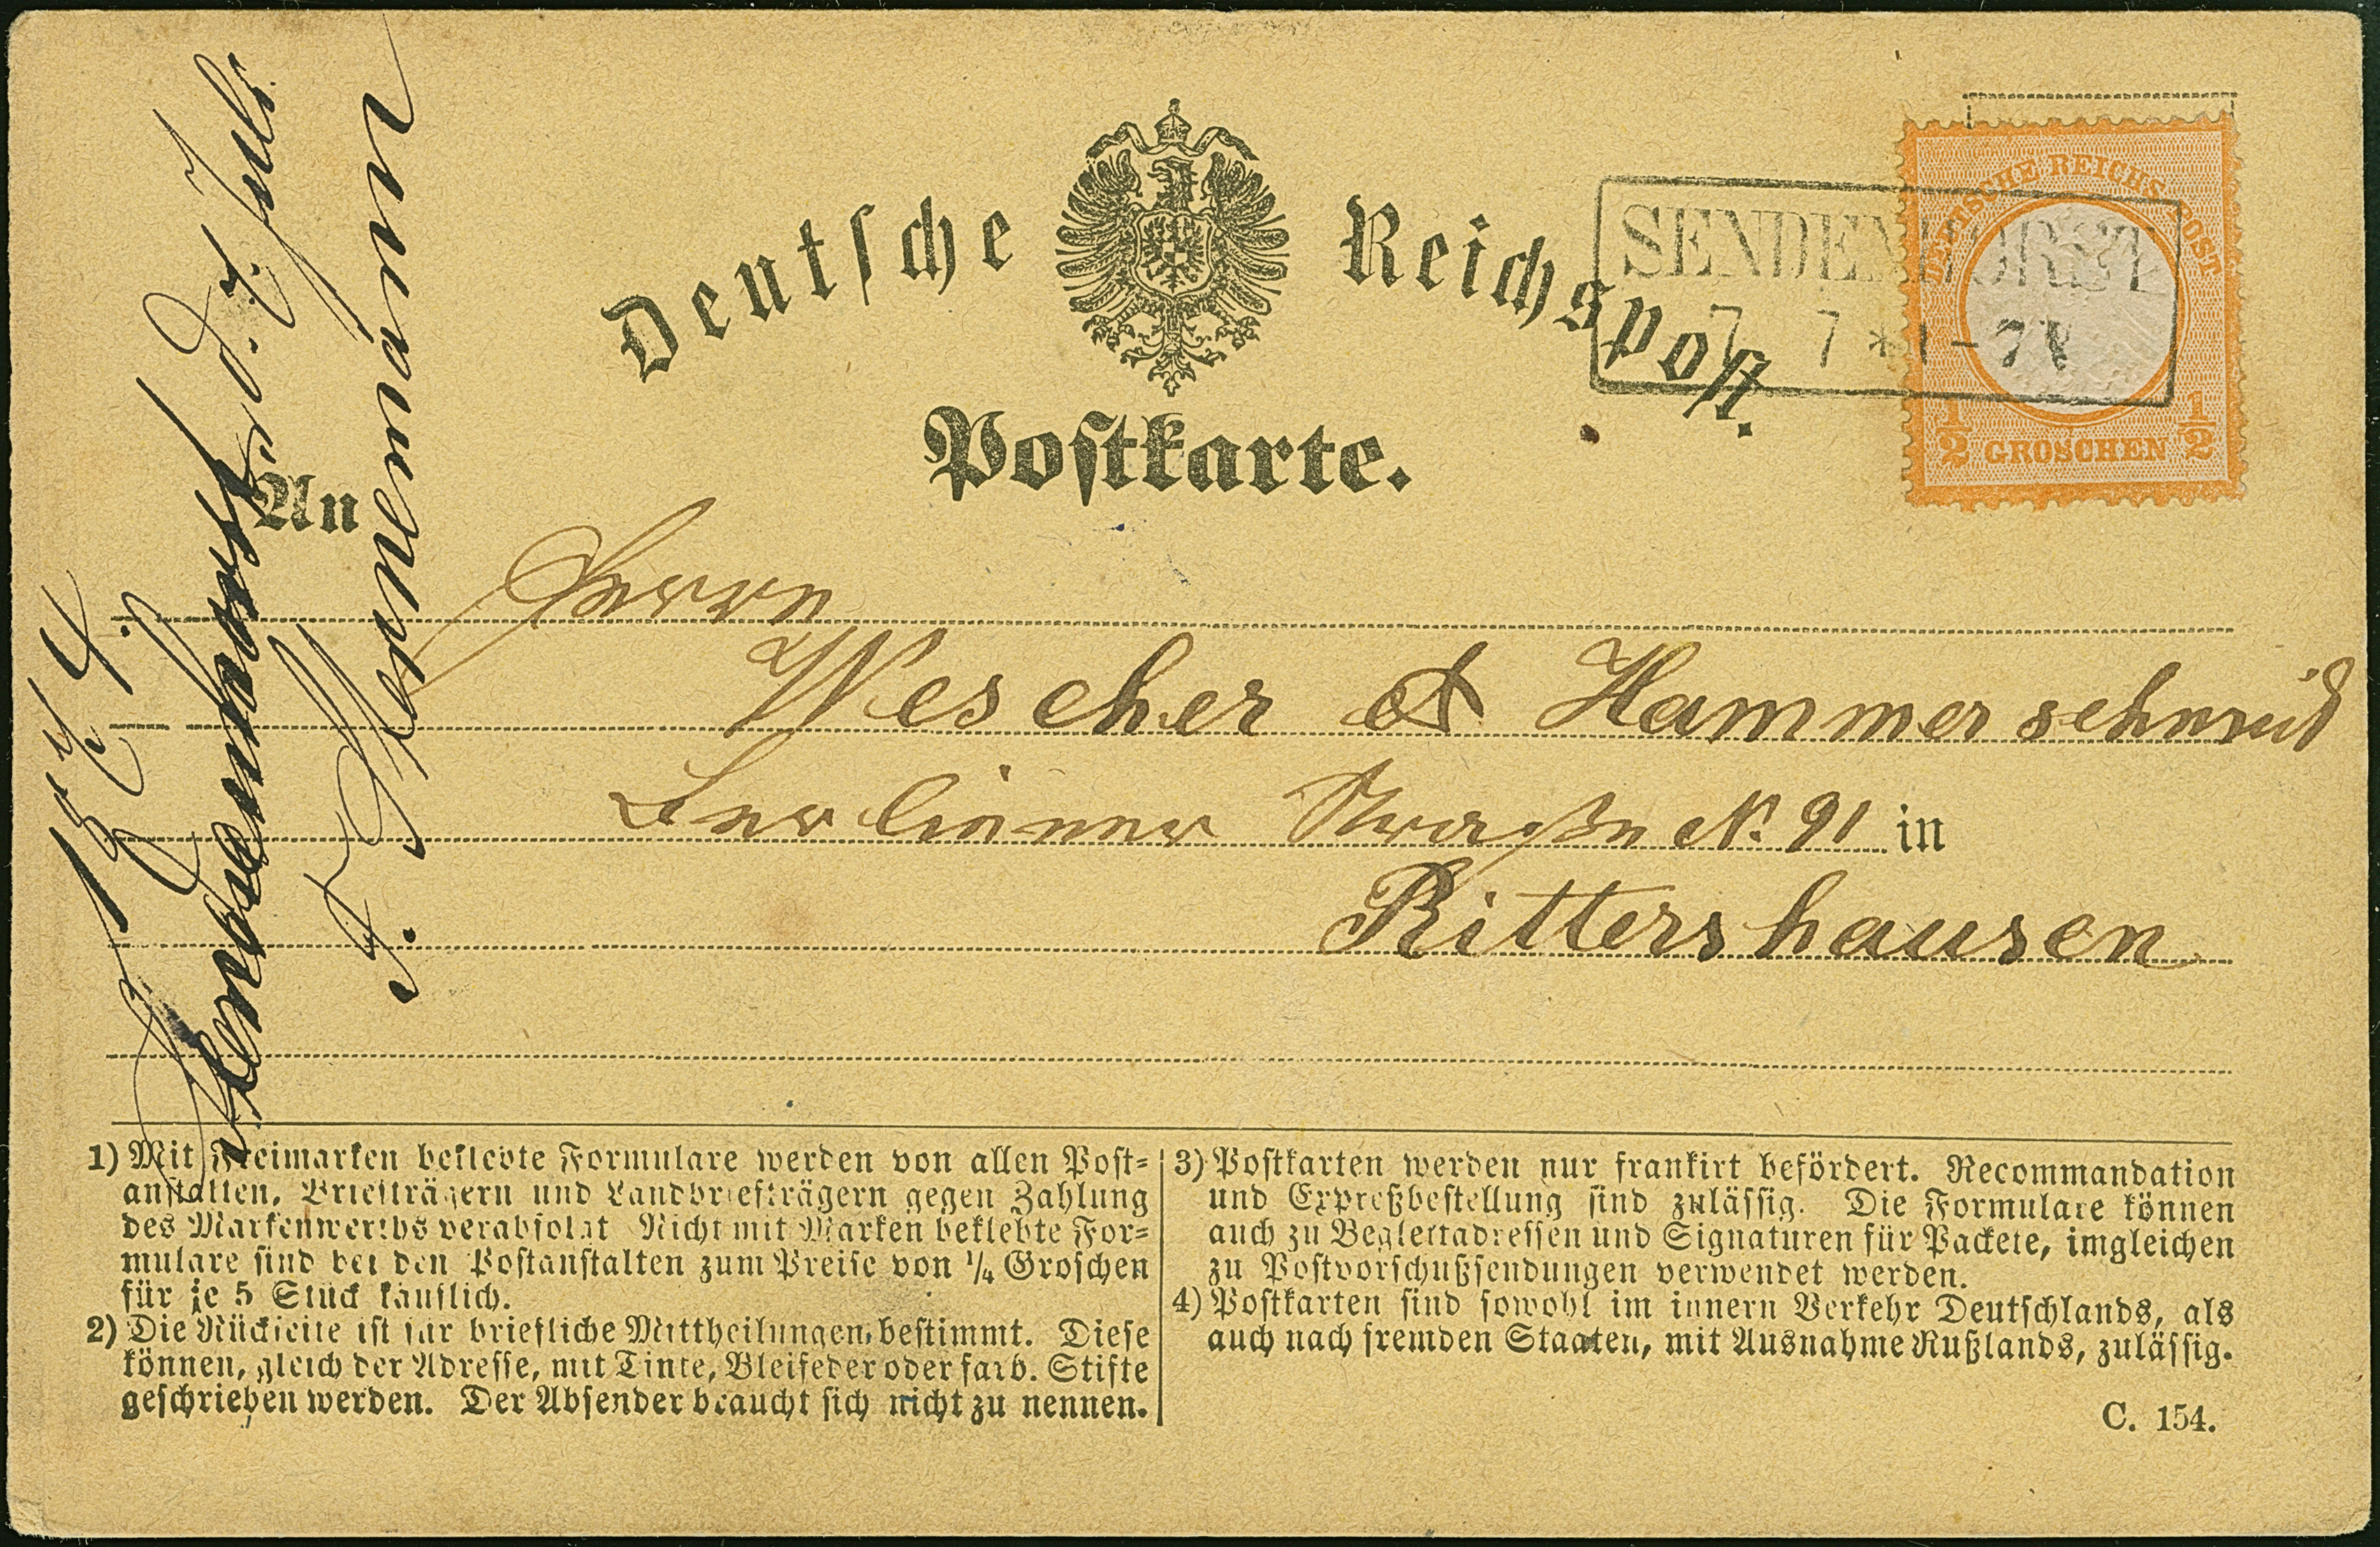 Deutsche Reichspost.
Postkarte.
DEUTSCHE REICHS POST
1/2 GROSCHEN 1/2
SENDENHORST
7 7 * 1-7 V
An
Herren
Wescher & Hammerschmid
Berliner Straße N. 91 in
Rittershausen
Sendenhorst, d. 7. Juli
1874.
1) Mit Freimarken beklebte Formulare werden von allen Post-
anstalten, Briefträgern und Landbriefträgern gegen Zahlung
des Markenwerths verabfolgt Nicht mit Marken beklebte For-
mulare sind bei den Postanstalten zum Preise von 1/4 Groschen
für je 5 Stück käuflich.
2) Die Rückseite ist für briefliche Mittheilungen bestimmt. Diese
können, gleich der Adresse, mit Tinte, Bleifeder oder farb. Stifte
geschrieben werden. Der Absender braucht sich nicht zu nennen.
3) Postkarten werden nur frankirt befördert. Recommandation
und Expreßbestellung sind zulässig. Die Formulare können
auch zu Begleitadressen und Signaturen für Packete, imgleichen
zu Postvorschußsendungen verwendet werden.
4) Postkarten sind sowohl im innern Verkehr Deutschlands, als
auch nach fremden Staaten, mit Ausnahme Rußlands, zulässig.
C. 154.